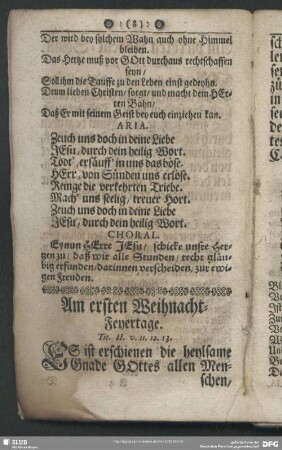 :(8):
Der wird bey solchem Wahn auch ohne Himmel
bleiben.
Das Hertze muß vor GOtt durchaus rechtschaffen
seyn/
Soll ihm die Tauffe zu den Leben einst gedeyhn.
Drum lieben Christen/ sorgt/ und macht dem HEr-
ren Bahn/
Daß Er mit seinem Geist bey euch einziehen kan.
ARIA.
Zeuch uns doch in deine Liebe
JEsu/ durch dein heilig Wort.
Tödt'/ ersäuff' in uns das böse.
HErr/ von Sünden uns erlöse.
Reinge die verkehrten Triebe.
Mach' uns seelig/ treuer Hort.
Zeuch uns doch in deine Liebe
JEsu/ durch dein heilig Wort.
CHORAL.
Eynun HErre JEsu/ schicke unsre Her-
tzen zu/ daß wir alle Stunden/ recht gläu-
big erfunden/ darinnen verscheiden/ zur ewi-
gen Freuden.
Am ersten Weihnacht-
Feyertage.
Tit. II. v. 11. 12. 13.
ES ist erschienen die heylsame
Gnade GOttes allen Men-
schen/
SLUB
DFG